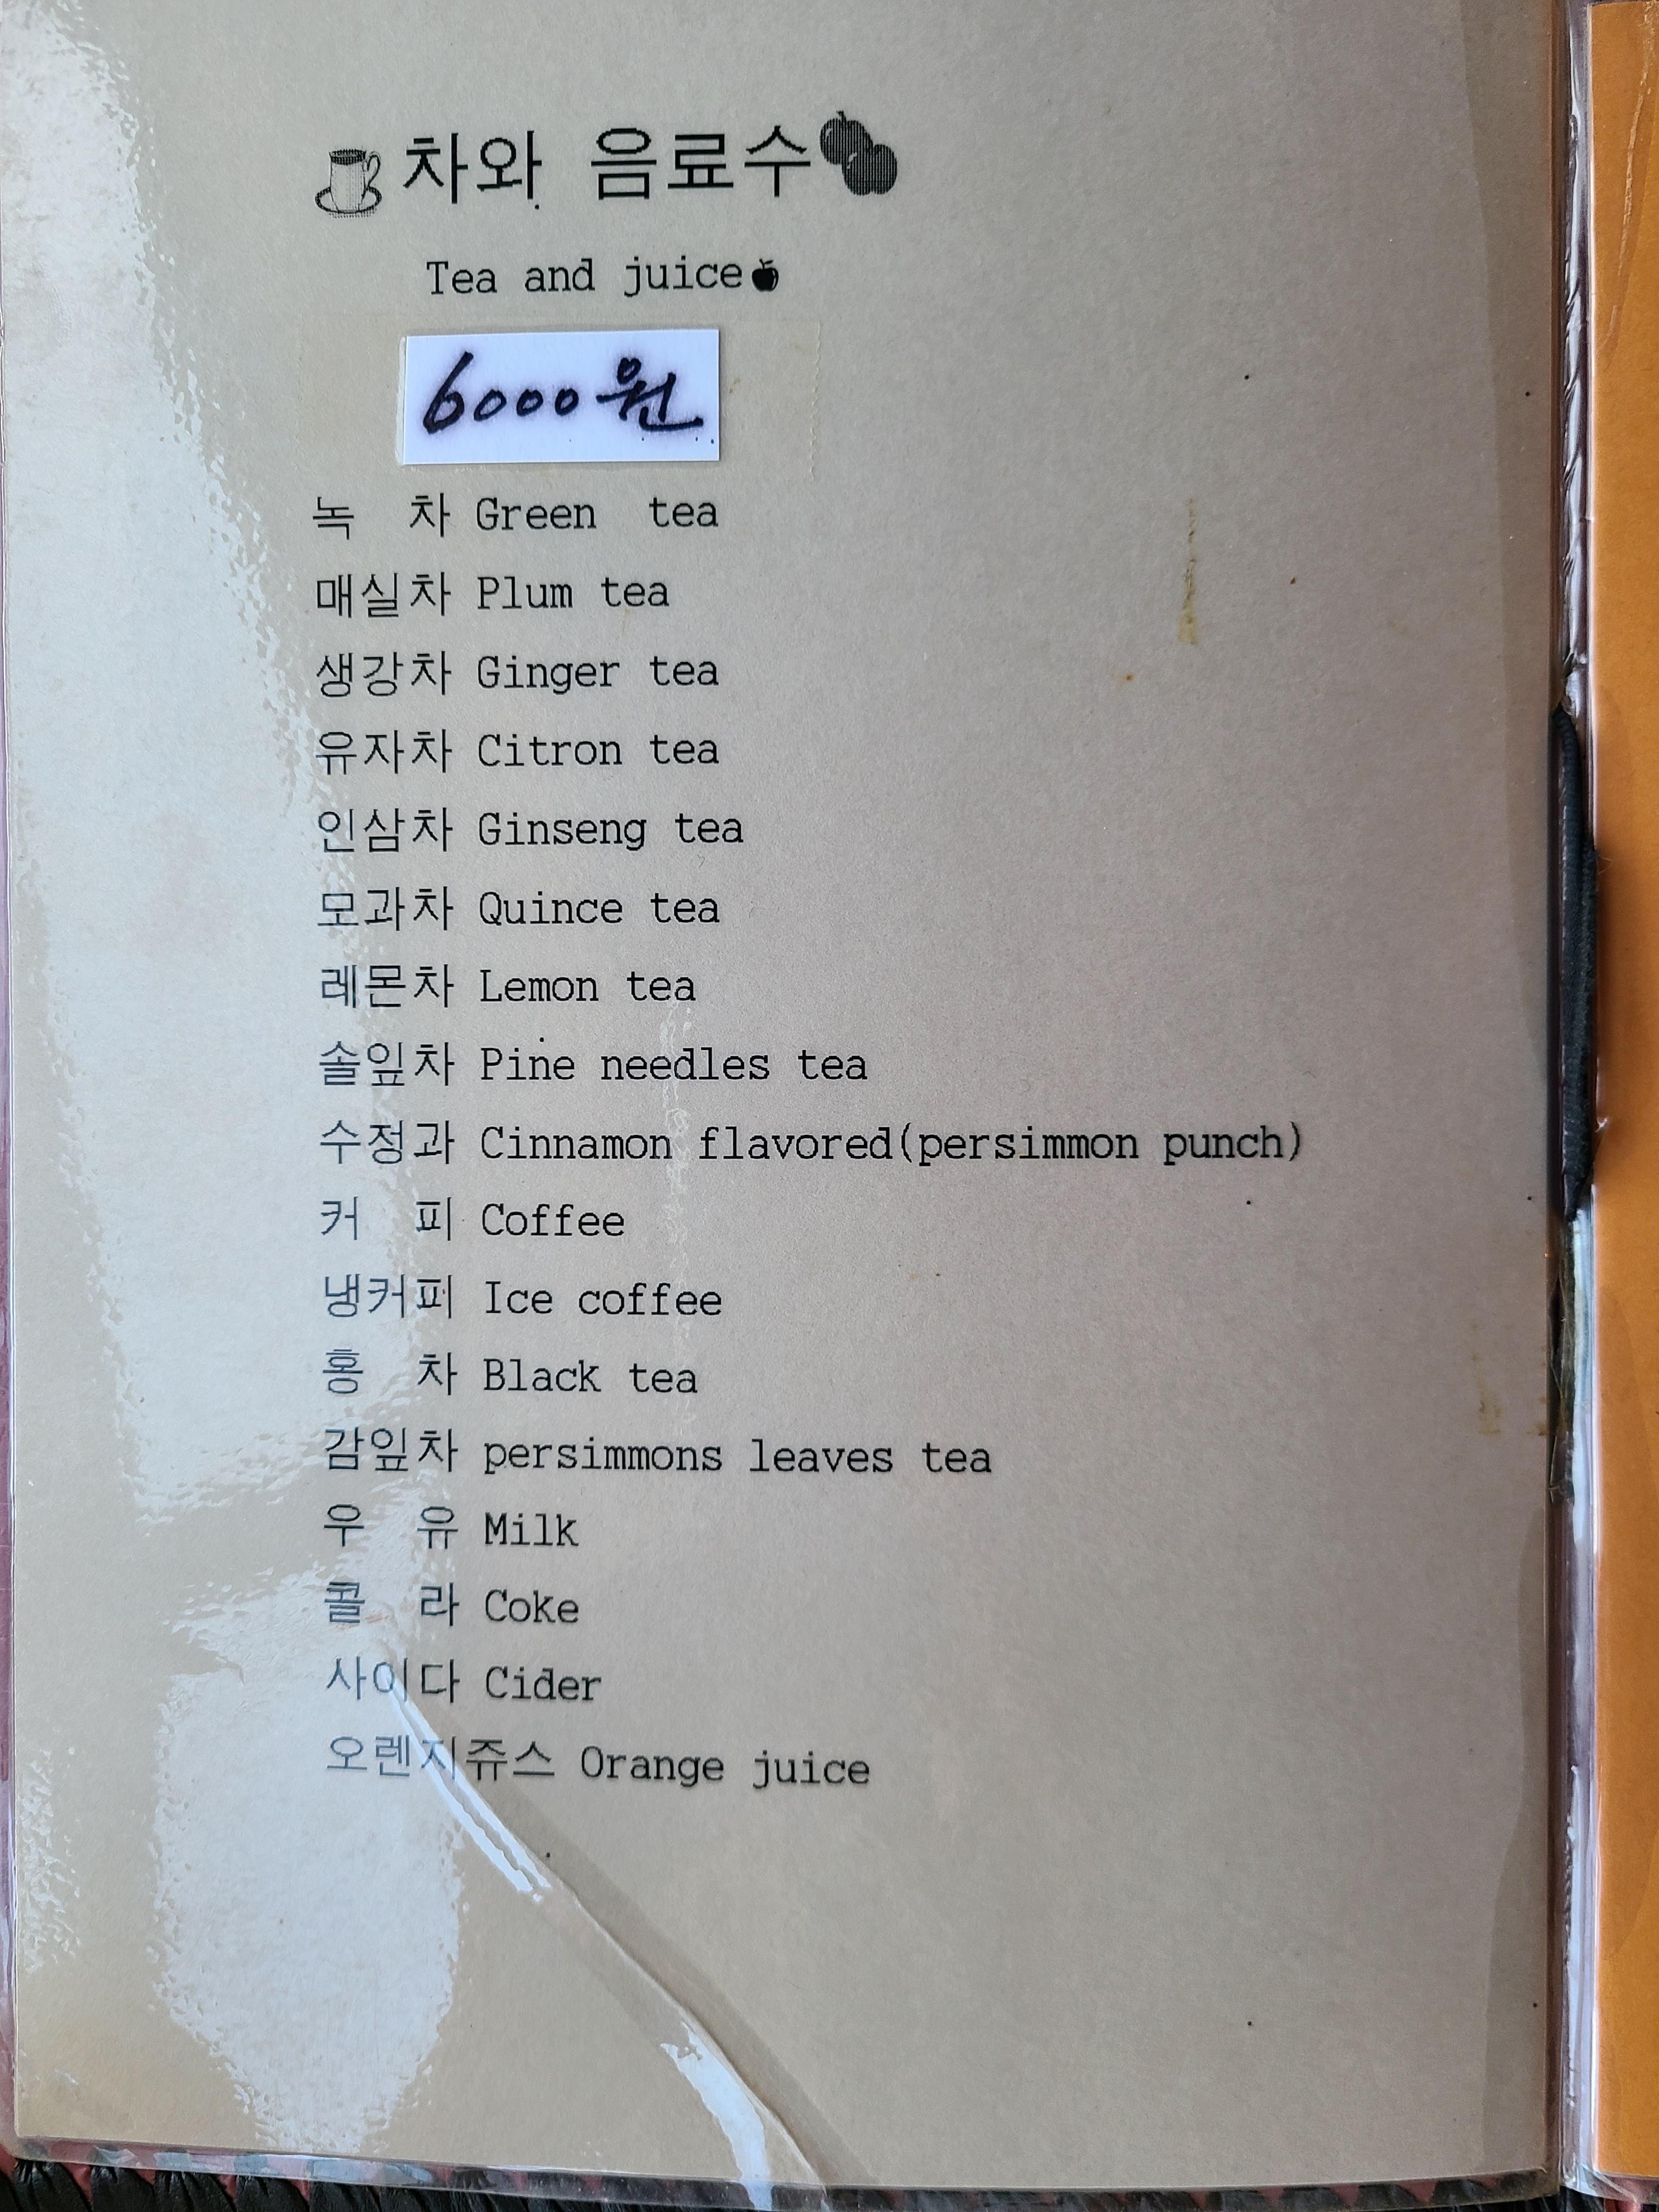 차와 음료수
Tea and juice
6000원
녹 차 Green tea
매실차 Plum tea
생강차 Ginger tea
유자차 Citron tea
인삼차 Ginseng tea
모과차 Quince tea
레몬차 Lemon tea
솔잎차 Pine needles tea
수정과 Cinnamon flavored(persimmon punch)
커 피 Coffee
냉커피 Ice coffee
홍 차 Black tea
감잎차 persimmons leaves tea
우 유 Milk
콜 라 Coke
사이다 Cider
오렌지쥬스 Orange juice